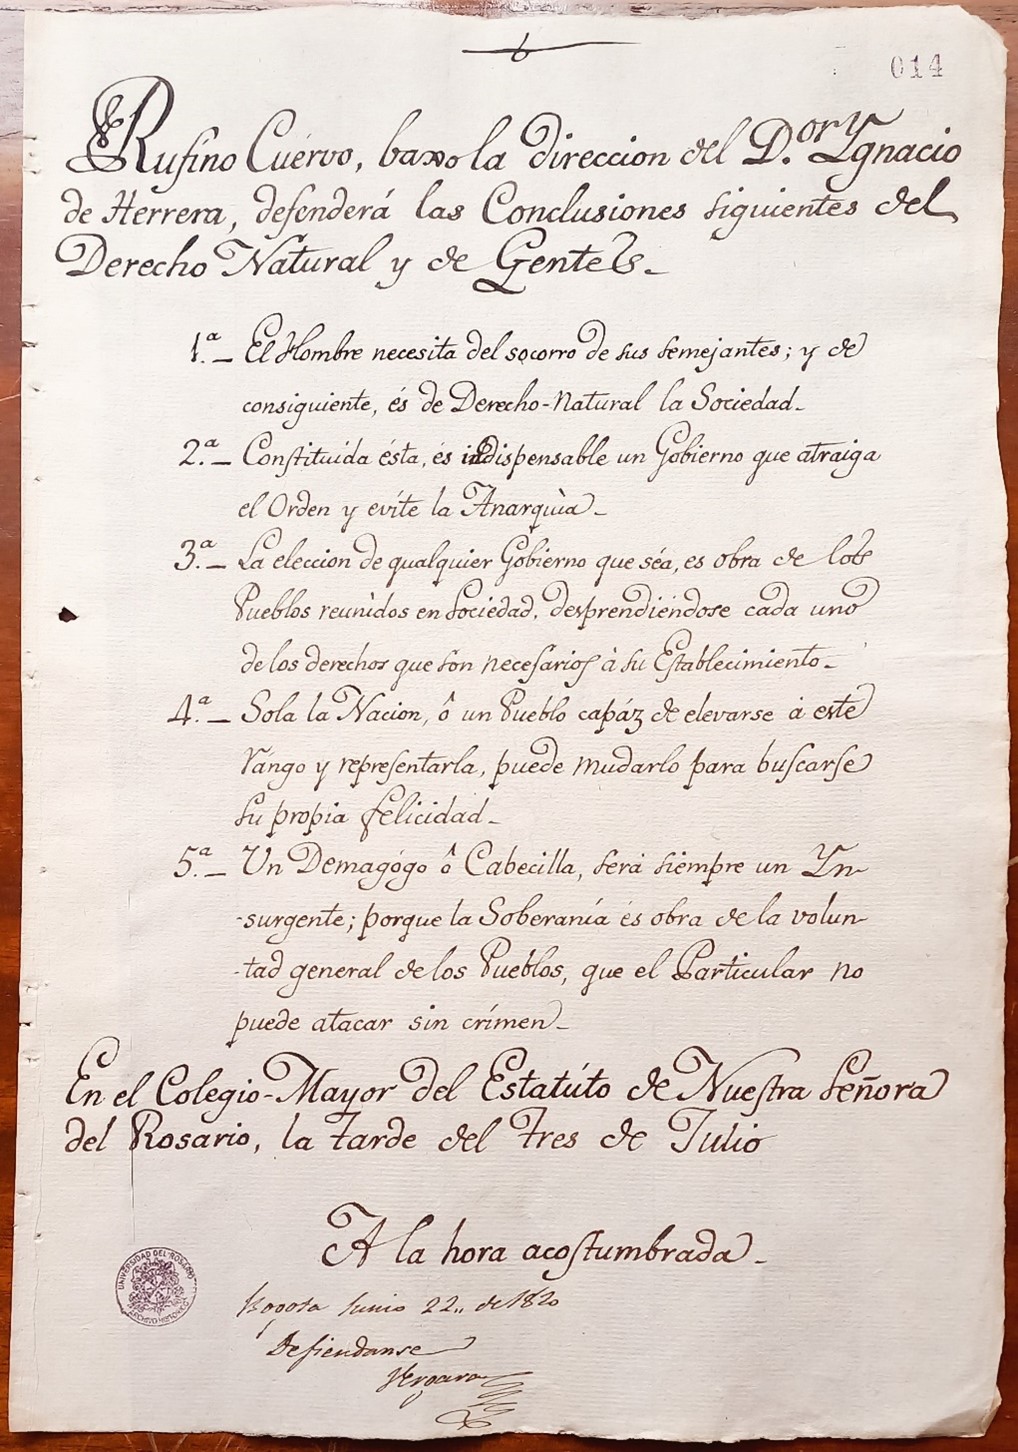 014
Rufino Cuervo, baxo la direccion del D.or Ygnacio
de Herrera, defenderá las Conclusiones siguientes del
Derecho Natural y de Gentes_
1.ª_ El Hombre necesita del socorro de sus semejantes; y de
consiguiente, és de Derecho-Natural la Sociedad_
2.ª_ Constituida ésta, és indispensable un Gobierno que atraiga
el Orden y evíte la Anarquìa_
3.ª_ La eleccion de qualquier Gobierno que séa, es obra de los
Pueblos reunìdos en Sociedad, desprendiéndose cada uno
de los derechos que son necesarios à su Establecimiento_
4.ª_ Sola la Nacion, ô un Pueblo capáz de elevarse à este
rango y representarla, puede mudarlo para buscarse
su propia felicidad_
5.ª_ Un Demagógo ô Cabecilla, será siempre un Yn-
-surgente; porque la Soberanía és obra de la volun-
-tad general de los Pueblos, que el Particular no
puede atacar sin crímen_
En el Colegio-Mayor del Estatúto de Nuestra Señora
del Rosario, la tarde del tres de Julio
A la hora acostumbrada_
UNIVERSIDAD DEL ROSARIO
ARCHIVO HISTORICO
Bogota Junio 22,, de 1820
Defiendanse
Vergara